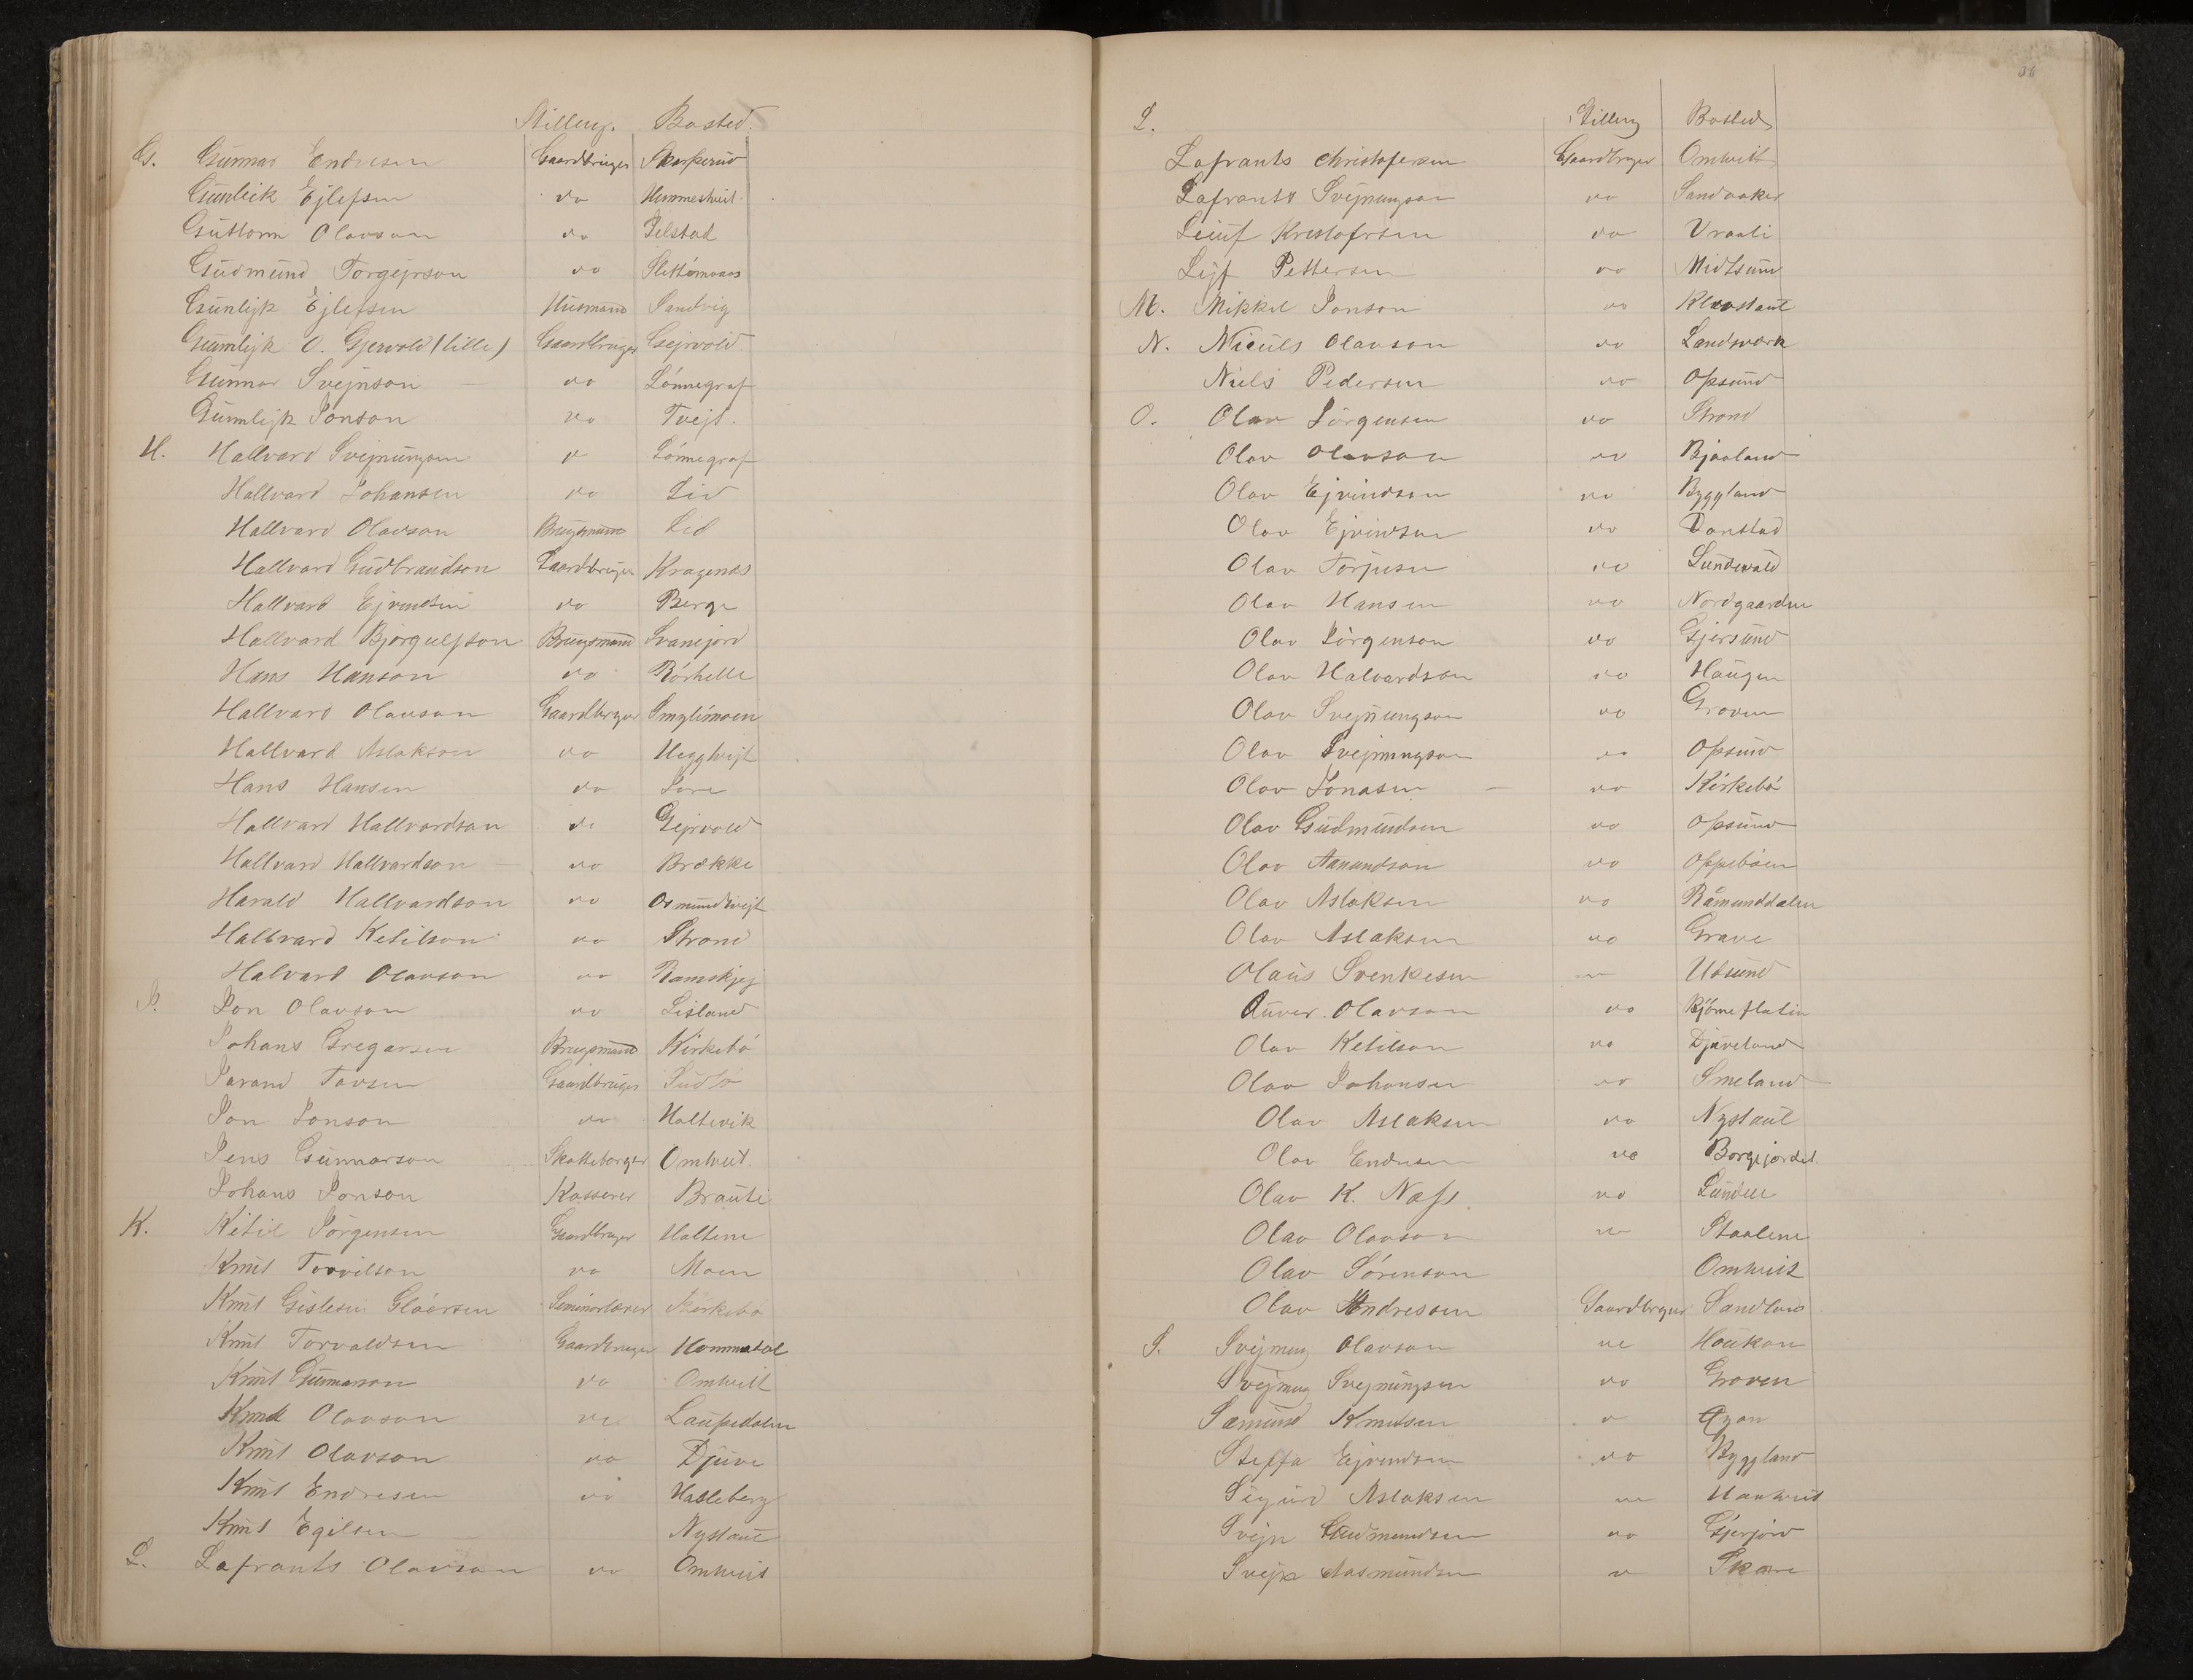 Stilling. Bosted.
G. Gunnar Endresen Gaardbruger Skarperud
Gunleik Ejlefsen do Hemmestveit
Guttorm Olavson do Selstad
Gudmund Torgejrson do
Gunlejk Ejlefsen Husmand Sandvig
Gunnlejk O. Gjervold (lille) Gaardbruger Gejrvold
Gunnar Svejnson do Lönnegraf
Gunnlejk Jonson do Tvejt.
H. Hallvard Svejnungsen do Lönnegraf
Hallvard Johansen do Lid
Hallvard Olavson Brugsmand Lid
Hallvard Gudbrandson Gaardbruger Kragenæs
Hallvard Ejvindsen do Berge
Hallvard Björgulfson Brugsmand Svanejord
Hans Hanson do Rörhelle
Hallvard Olavson Gaardbruger
Hallvard Aslakson do Heggtvejt
Hans Hansen do
Hallvard Hallvardson do Gejrvold
Hallvard Hallvardson do Brække
Harald Hallvardson do Ormundtvejt
Hallvard Ketilson do Strand
Halvard Olavson do Ramskjej
J. Jon Olavson do Lisland
Johans Gregarsen Brugsmand Kirkebö
Jarand Tovsen Gaardbruger Sudbö
Jon Jonson do Haltevik
Jens Gunnarson Skatteborger Omtveit.
Johans Jonson Kasserer Brauti
K. Ketil Jörgensen Gaardbruger Haltene
Knut Torvilson do Moen
Knut Gislesen Glóersen Seminarlærer Kirkebö
Knut Torvaldsen Gaardbruger Hommedal
Knut Gunnarson do Omtveit
Knud Olavson do Laupedalen
Knut Olavson do Djuve
Knut Endresen do Hasleberg
Knut Egilsen Nystaul
L. Lafrants Olavson do Omtveit
36
L. Stilling Bosted
Lafrants Christofersen Gaardbruger Omtveit
Lafrants Svejnungson do Sandaaker
Leiuf Kristofersen do Vraali
Lejf Pettersen do Midtsund
M. Mikkel Jonson do
N. Niculs Olavson do Landsværk
Niels Pedersen do Opsund
O. Olav Jörgensen do Strand
Olav Olavson do Bjaaland
Olav Ejvindson do Byggland
Olav Ejvindsen do Danstad
Olav Torjusen do Lundevald
Olav Hansen do Nordgaarden
Olav Jörgenson do Gjersund
Olav Halvardson do Haugen
Olav Svejnungson do Groven
Olav Svejnungson do Opsund
Olav Jonasen do Kirkebö
Olav Gudmundsen do Opsund
Olav Aanundson do Oppeböen
Olav Aslaksen do Råmunddalen
Olav Aslaksen do Grave
Olaus Svenkesen do Utsund
Auver. Olavson do Björneflatin
Olav Ketilson do Djuveland
Olav Johansen do Smeland
Olav Aslaksen do Nystaul
Olav Endresen do Borgejordet
Olav K. Næss do Lunden
Olav Olavson do Staalene
Olav Sörenson Omtveit
Olav Andressen Gaardbruger Sandland
S. Svejnung Olavson do Haukom
Svejnung Svejnungsen do Groven
Sæmund Knutsen do
Steffa Ejvindsen do Byggland
Sigurd Aslaksen do Hauktveit
Svejn Gudmundsen do Gjerjord
Svejn Aasmundsen do Skare